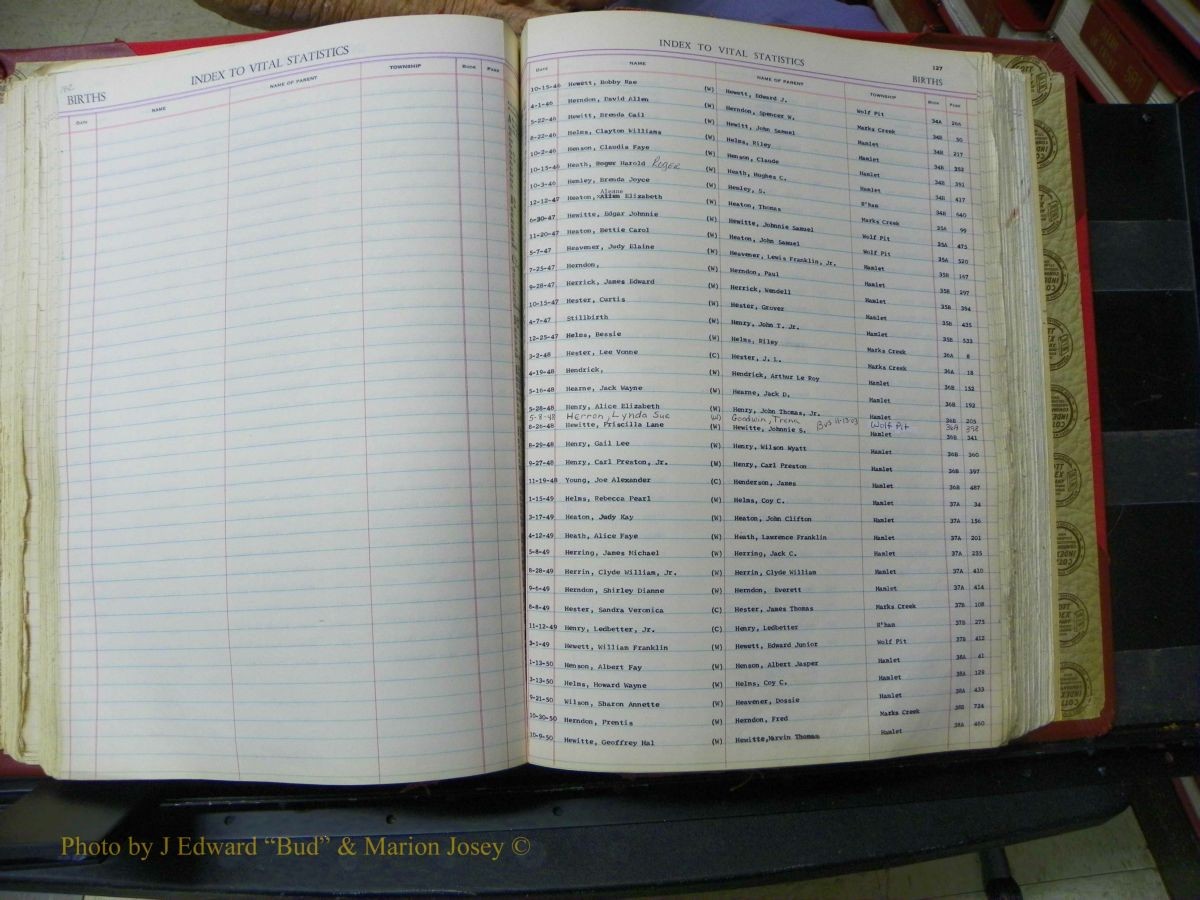 INDEX TO VITAL STATISTICS
BIRTHS
DATE NAME NAME OF PARENT TOWNSHIP BOOK PAGE
INDEX TO VITAL STATISTICS 127
BIRTHS
DATE NAME NAME OF PARENT TOWNSHIP BOOK PAGE
10-15-46 Hewett, Bobby Rae (W) Hewett, Edward J. Wolf Pit 34A 264
4-1-46 Herndon, David Allen (W) Herndon, Spencer W. Marks Creek 34B 50
5-22-46 Hewitt, Brenda Gail (W) Hewitt, John Samuel Hamlet 34B 217
8-22-46 Helms, Clayton Williams (W) Helms, Riley Hamlet 34B 352
10-2-46 Henson, Claudia Faye (W) Henson, Claude Hamlet 34B 391
10-15-46 Heath, Roger Harold Roger (W) Heath, Hughes C. Hamlet 34B 417
10-3-46 Henley, Brenda Joyce (W) Henley, S. R'han 34B 640
Aleane
12-12-47 Heaton, Allen Elizabeth (W) Heaton, Thomas Marks Creek 35A 99
6-30-47 Hewitte, Edgar Johnnie (W) Hewitte, Johnnie Samuel Wolf Pit 35A 475
11-20-47 Heaton, Bettie Carol (W) Heaton, John Samuel Wolf Pit 35A 520
5-7-47 Heavener, Judy Elaine (W) Heavener, Lewis Franklin, Jr. Hamlet 35B 167
7-25-47 Herndon, (W) Herndon, Paul Hamlet 35B 297
9-28-47 Herrick, James Edward (W) Herrick, Wendell Hamlet 35B 394
10-15-47 Hester, Curtis (W) Hester, Gruver Hamlet 35B 435
4-7-47 Stillbirth (W) Henry, John T. Jr. Hamlet 35B 533
12-25-47 Helms, Bessie (W) Helms, Riley Marks Creek 36A 8
3-2-48 Hester, Lee Vonne (C) Hester, J. L. Marks Creek 36A 18
4-19-48 Hendrick, (W) Hendrick, Arthur Le Roy Hamlet 36B 152
5-16-48 Hearne, Jack Wayne (W) Hearne, Jack D. Hamlet 36B 192
5-28-48 Henry, Alice Elizabeth (W) Henry, John Thomas, Jr. Hamlet 36B 205
5-8-48 Herron, Lynda Sue (W) Goodwin, Trena BVS 11-13-03 Wolf Pit 36A 398
8-26-48 Hewitte, Priscilla Lane (W) Hewitte, Johnnie S. Hamlet 36B 341
8-29-48 Henry, Gail Lee (W) Henry, Wilson Wyatt Hamlet 36B 360
9-27-48 Henry, Carl Preston, Jr. (W) Henry, Carl Preston Hamlet 36B 397
11-19-48 Young, Joe Alexander (C) Henderson, James Hamlet 36B 487
1-15-49 Helms, Rebecca Pearl (W) Helms, Coy C. Hamlet 37A 34
3-17-49 Heaton, Judy Kay (W) Heaton, John Clifton Hamlet 37A 156
4-12-49 Heath, Alice Faye (W) Heath, Lawrence Franklin Hamlet 37A 201
5-8-49 Herring, James Michael (W) Herring, Jack C. Hamlet 37A 235
8-28-49 Herrin, Clyde William, Jr. (W) Herrin, Clyde William Hamlet 37A 410
9-6-49 Herndon, Shirley Dianne (W) Herndon, Everett Hamlet 37A 414
8-8-49 Hester, Sandra Veronica (C) Hester, James Thomas Marks Creek 37B 108
11-12-49 Henry, Ledbetter, Jr. (C) Henry, Ledbetter R'han 37B 275
3-1-49 Hewett, William Franklin (W) Hewett, Edward Junior Wolf Pit 37B 412
1-13-50 Henson, Albert Fay (W) Henson, Albert Jasper Hamlet 38A 41
3-13-50 Helms, Howard Wayne (W) Helms, Coy C. Hamlet 38A 128
9-21-50 Wilson, Sharon Annette (W) Heavener, Dossie Hamlet 38A 433
10-30-50 Herndon, Prentis (W) Herndon, Fred Marks Creek 38B 724
10-9-50 Hewitte, Geoffrey Hal (W) Hewitte, Marvin Thomas Hamlet 38A 460
Photo by J Edward “Bud” & Marion Josey ©